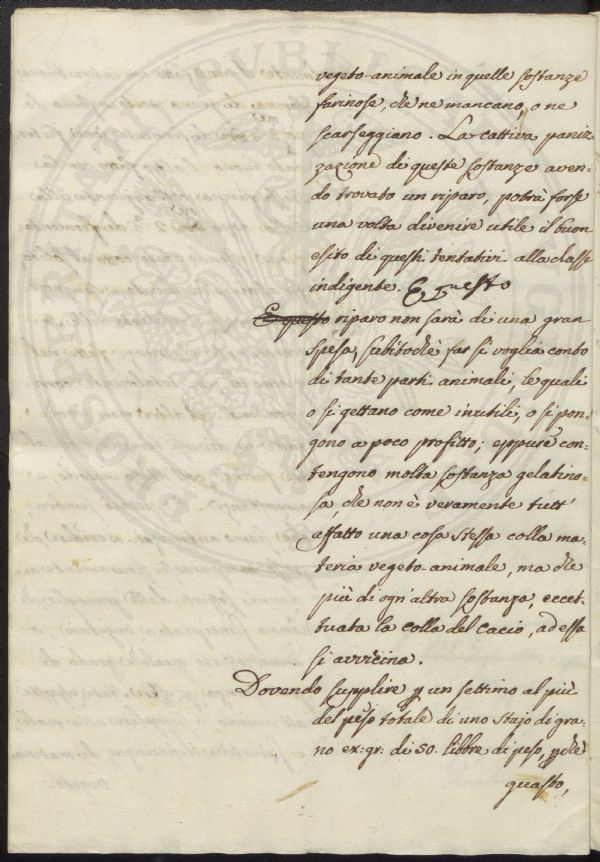 vegeto-animale in quelle sostanze
farinose, che ne mancano, o ne
scarseggiano. La cattiva paniz-
zazione di queste sostanze aven-
do trovato un riparo, potrà forse
una volta divenire utile il buon
esito di questi tentativi alla classe
indigente. E questo
E questo riparo non sarà di una gran
spesa, subitochè far si voglia conto
di tante parti animali, le quali
o si gettano come inutili, o si pon-
gono a poco profitto; eppure con-
tengono molta sostanza gelatino-
sa, che non è veramente tutt'
affatto una cosa stessa colla ma-
teria vegeto-animale, ma che
più di ogn'altra sostanza, eccet-
tuata la colla del cacio, ad essa
si avvicina.
Dovendo supplire p un settimo al più
del peso totale di uno stajo di gra-
no ex: gr: di 50. libbre di peso, pchè
questo,